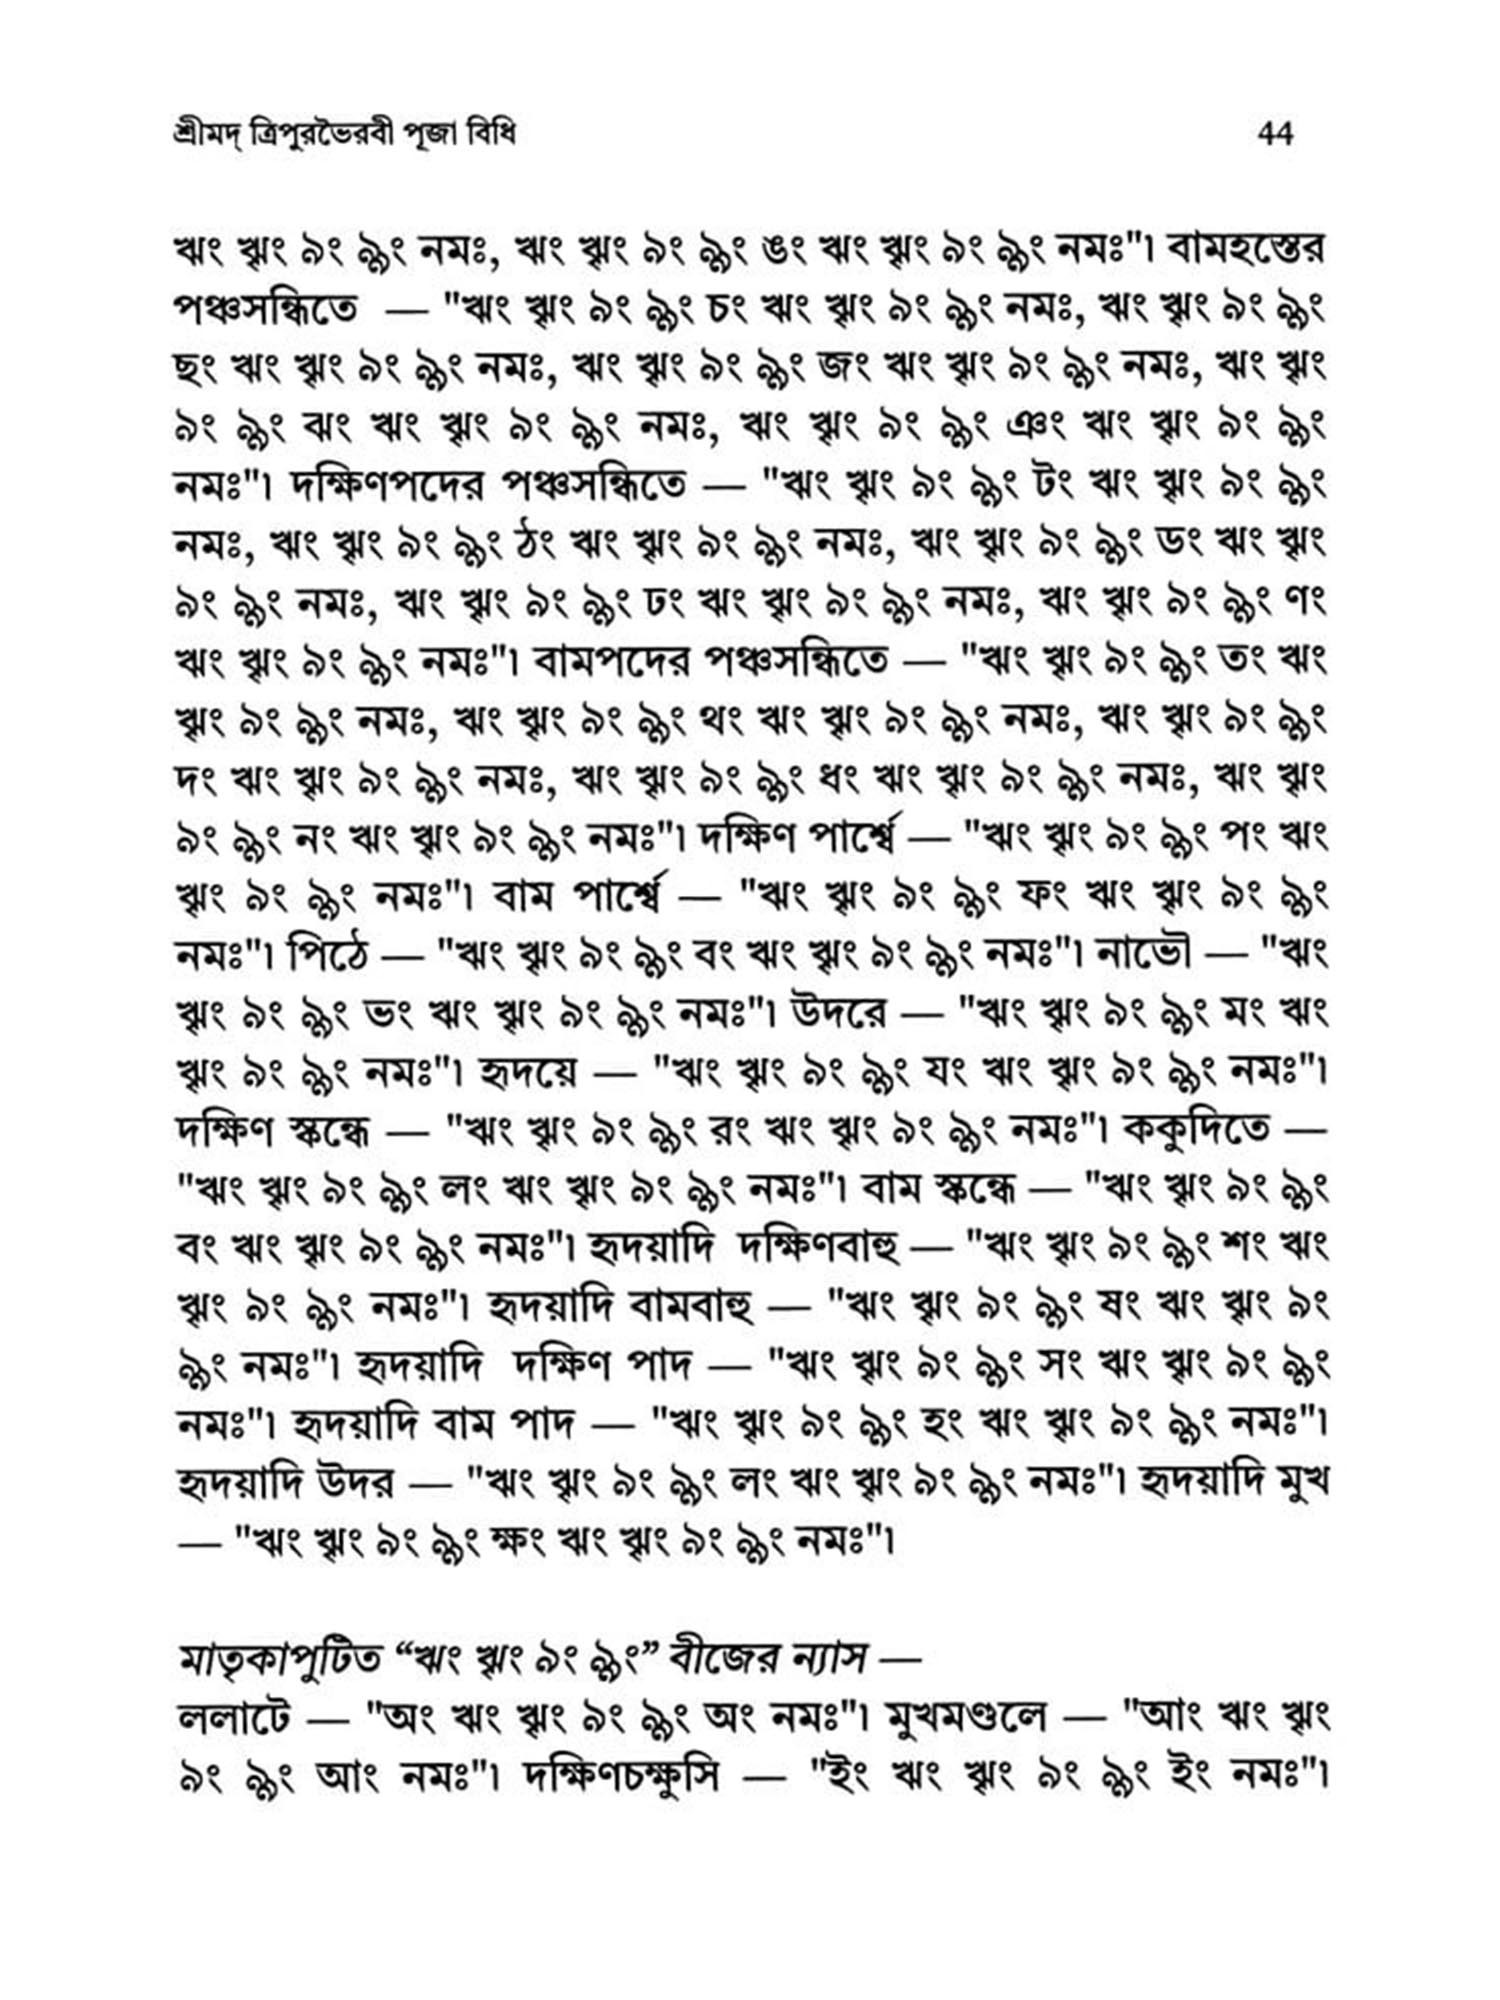 শ্রীমদ্ ত্রিপুরভৈরবী পূজা বিধি 44
ঋং ৠং ঌং ৡং নমঃ, ঋং ৠং ঌং ৡং ঙং ঋং ৠং ঌং ৡং নমঃ"৷ বামহস্তের
পঞ্চসন্ধিতে — "ঋং ৠং ঌং ৡং চং ঋং ৠং ঌং ৡং নমঃ, ঋং ৠং ঌং ৡং
ছং ঋং ৠং ঌং ৡং নমঃ, ঋং ৠং ঌং ৡং জং ঋং ৠং ঌং ৡং নমঃ, ঋং ৠং
ঌং ৡং ঝং ঋং ৠং ঌং ৡং নমঃ, ঋং ৠং ঌং ৡং ঞং ঋং ৠং ঌং ৡং
নমঃ"৷ দক্ষিণপদের পঞ্চসন্ধিতে — "ঋং ৠং ঌং ৡং টং ঋং ৠং ঌং ৡং
নমঃ, ঋং ৠং ঌং ৡং ঠং ঋং ৠং ঌং ৡং নমঃ, ঋং ৠং ঌং ৡং ডং ঋং ৠং
ঌং ৡং নমঃ, ঋং ৠং ঌং ৡং ঢং ঋং ৠং ঌং ৡং নমঃ, ঋং ৠং ঌং ৡং ণং
ঋং ৠং ঌং ৡং নমঃ"৷ বামপদের পঞ্চসন্ধিতে — "ঋং ৠং ঌং ৡং তং ঋং
ৠং ঌং ৡং নমঃ, ঋং ৠং ঌং ৡং থং ঋং ৠং ঌং ৡং নমঃ, ঋং ৠং ঌং ৡং
দং ঋং ৠং ঌং ৡং নমঃ, ঋং ৠং ঌং ৡং ধং ঋং ৠং ঌং ৡং নমঃ, ঋং ৠং
ঌং ৡং নং ঋং ৠং ঌং ৡং নমঃ"৷ দক্ষিণ পার্শ্বে — "ঋং ৠং ঌং ৡং পং ঋং
ৠং ঌং ৡং নমঃ"৷ বাম পার্শ্বে — "ঋং ৠং ঌং ৡং ফং ঋং ৠং ঌং ৡং
নমঃ"৷ পিঠে — "ঋং ৠং ঌং ৡং বং ঋং ৠং ঌং ৡং নমঃ"৷ নাভৌ — "ঋং
ৠং ঌং ৡং ভং ঋং ৠং ঌং ৡং নমঃ"৷ উদরে — "ঋং ৠং ঌং ৡং মং ঋং
ৠং ঌং ৡং নমঃ"৷ হৃদয়ে — "ঋং ৠং ঌং ৡং যং ঋং ৠং ঌং ৡং নমঃ"৷
দক্ষিণ স্কন্ধে — "ঋং ৠং ঌং ৡং রং ঋং ৠং ঌং ৡং নমঃ"৷ ককুদিতে —
"ঋং ৠং ঌং ৡং লং ঋং ৠং ঌং ৡং নমঃ"৷ বাম স্কন্ধে — "ঋং ৠং ঌং ৡং
বং ঋং ৠং ঌং ৡং নমঃ"৷ হৃদয়াদি দক্ষিণবাহু — "ঋং ৠং ঌং ৡং শং ঋং
ৠং ঌং ৡং নমঃ"৷ হৃদয়াদি বামবাহু — "ঋং ৠং ঌং ৡং ষং ঋং ৠং ঌং
ৡং নমঃ"৷ হৃদয়াদি দক্ষিণ পাদ — "ঋং ৠং ঌং ৡং সং ঋং ৠং ঌং ৡং
নমঃ"৷ হৃদয়াদি বাম পাদ — "ঋং ৠং ঌং ৡং হং ঋং ৠং ঌং ৡং নমঃ"৷
হৃদয়াদি উদর — "ঋং ৠং ঌং ৡং লং ঋং ৠং ঌং ৡং নমঃ"৷ হৃদয়াদি মুখ
— "ঋং ৠং ঌং ৡং ক্ষং ঋং ৠং ঌং ৡং নমঃ"৷
মাতৃকাপুটিত “ঋং ৠং ঌং ৡং” বীজের ন্যাস —
ললাটে — "অং ঋং ৠং ঌং ৡং অং নমঃ"৷ মুখমণ্ডলে — "আং ঋং ৠং
ঌং ৡং আং নমঃ"৷ দক্ষিণচক্ষুসি — "ইং ঋং ৠং ঌং ৡং ইং নমঃ"৷